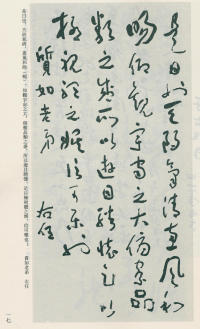 是日也天朗氣清惠風和
暘仰觀宇宙之大俯察品
類之盛所以遊目騁懷足以
極視聽之娛信可樂也
質如老弟
右任
是日也，天朗氣清，惠風和暘（暢），仰觀宇宙之大，俯察品類之盛，所以遊目騁懷，足以極視聽之娛，信可樂也。 質如老弟 右任
一七